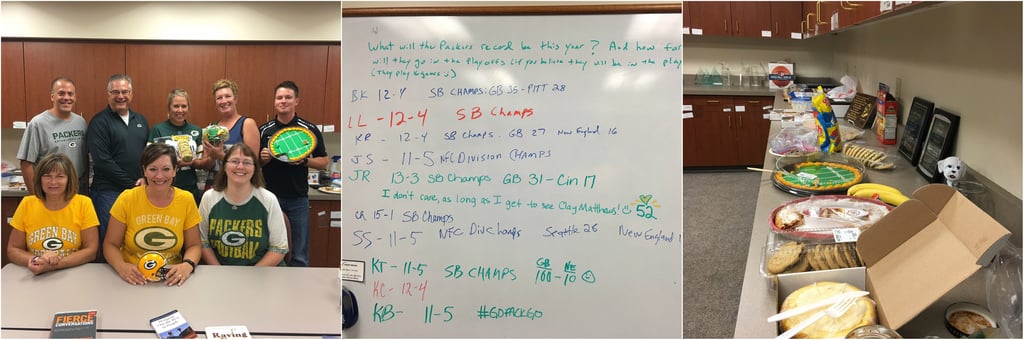 PACKERS
GREEN BAY
GREEN BAY
G
PACKERS
FOOTBALL
FIERCE
CONVERSATIONS
Raving
What will the Packers record be this year? And how far
will they go in the playoffs (if you believe they will be in the play
(They play 16 games :)
BK 12-4 SB CHAMPS: GB 35 - PITT 28
LL - 12-4 SB Champs
KR - 12-4 SB Champs. GB 27 New England 16
JS - 11-5 NFC Division CHAMPS
JR 13-3 SB Champs GB 31 - Cin 17
I don't care, as long as I get to see Clay Matthews! 52
15-1 SB Champs
SS - 11-5 NFC Div Champs Seattle 28 New England
KT - 11-5 SB CHAMPS GB NE
100 - 10
KC - 12-4
KB - 11-5 #GOPACKGO